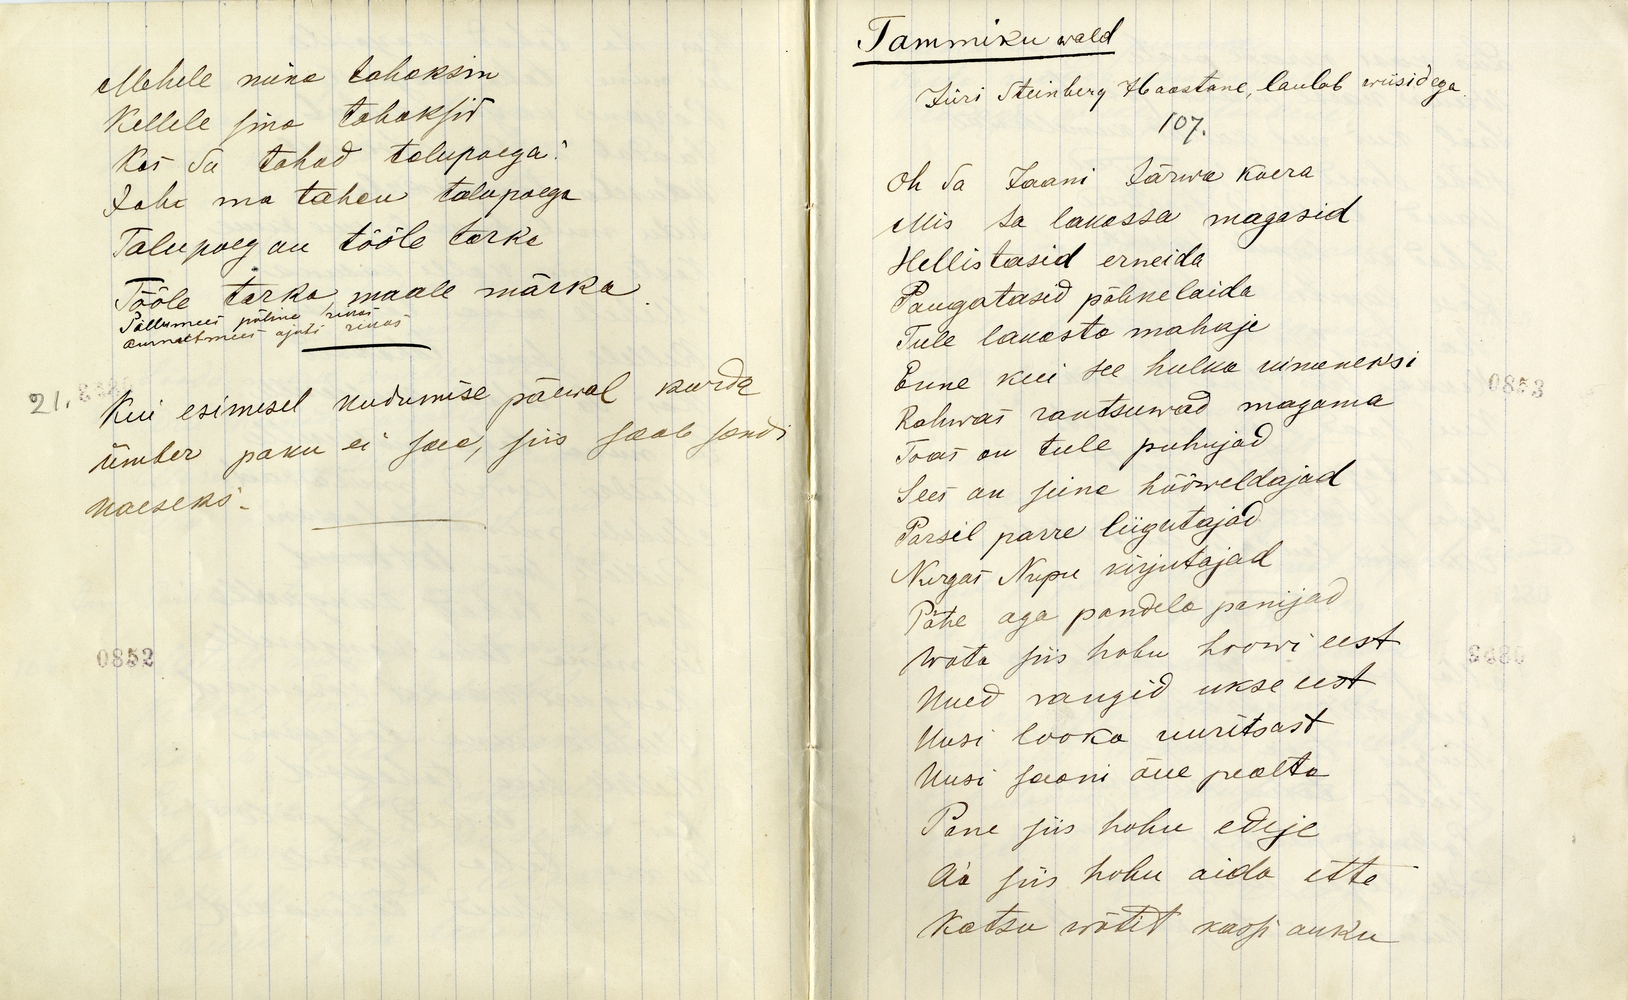 Mehele mina tahaksin
Kellele sina tahaksid
Kas Sa tahad talupoega?
Jaha ma tahan talupoega
Talupoeg on tööle tarka
Tööle tarka, maale märka.
Põllumees põline rikas
ajuti rikas
21. Kui esimesel kudumise päewal korda
ümber paku ei saa, siis saab sandi
naeseks.
0852
Tammiku wald
Jüri Steinberg Haastane, laulab wiisidega.
107.
Oh Sa Jaani Järwe koera
Mis Sa lakassa magasid
Hellistasid erneida
Paugatasid põhnelaida
Tule lakasta mahaje
Enne kui see hulka
Rahwas rautsuwad magama
Toas on tule puhujad
Sees on seina hööweldajad
Parsil parre liigutajad
Nurgas Nupu kirjutajad
Pähe aga pandela panijad
Wõta siis hobu hoowi eest
Uued rangid ukse eest
Uusi looka uuritsast
Uusi saani õue pealta
Pane siis hobu edeje
Aa siis hobu aida ette
Katsu wõtit kassi auku
0853